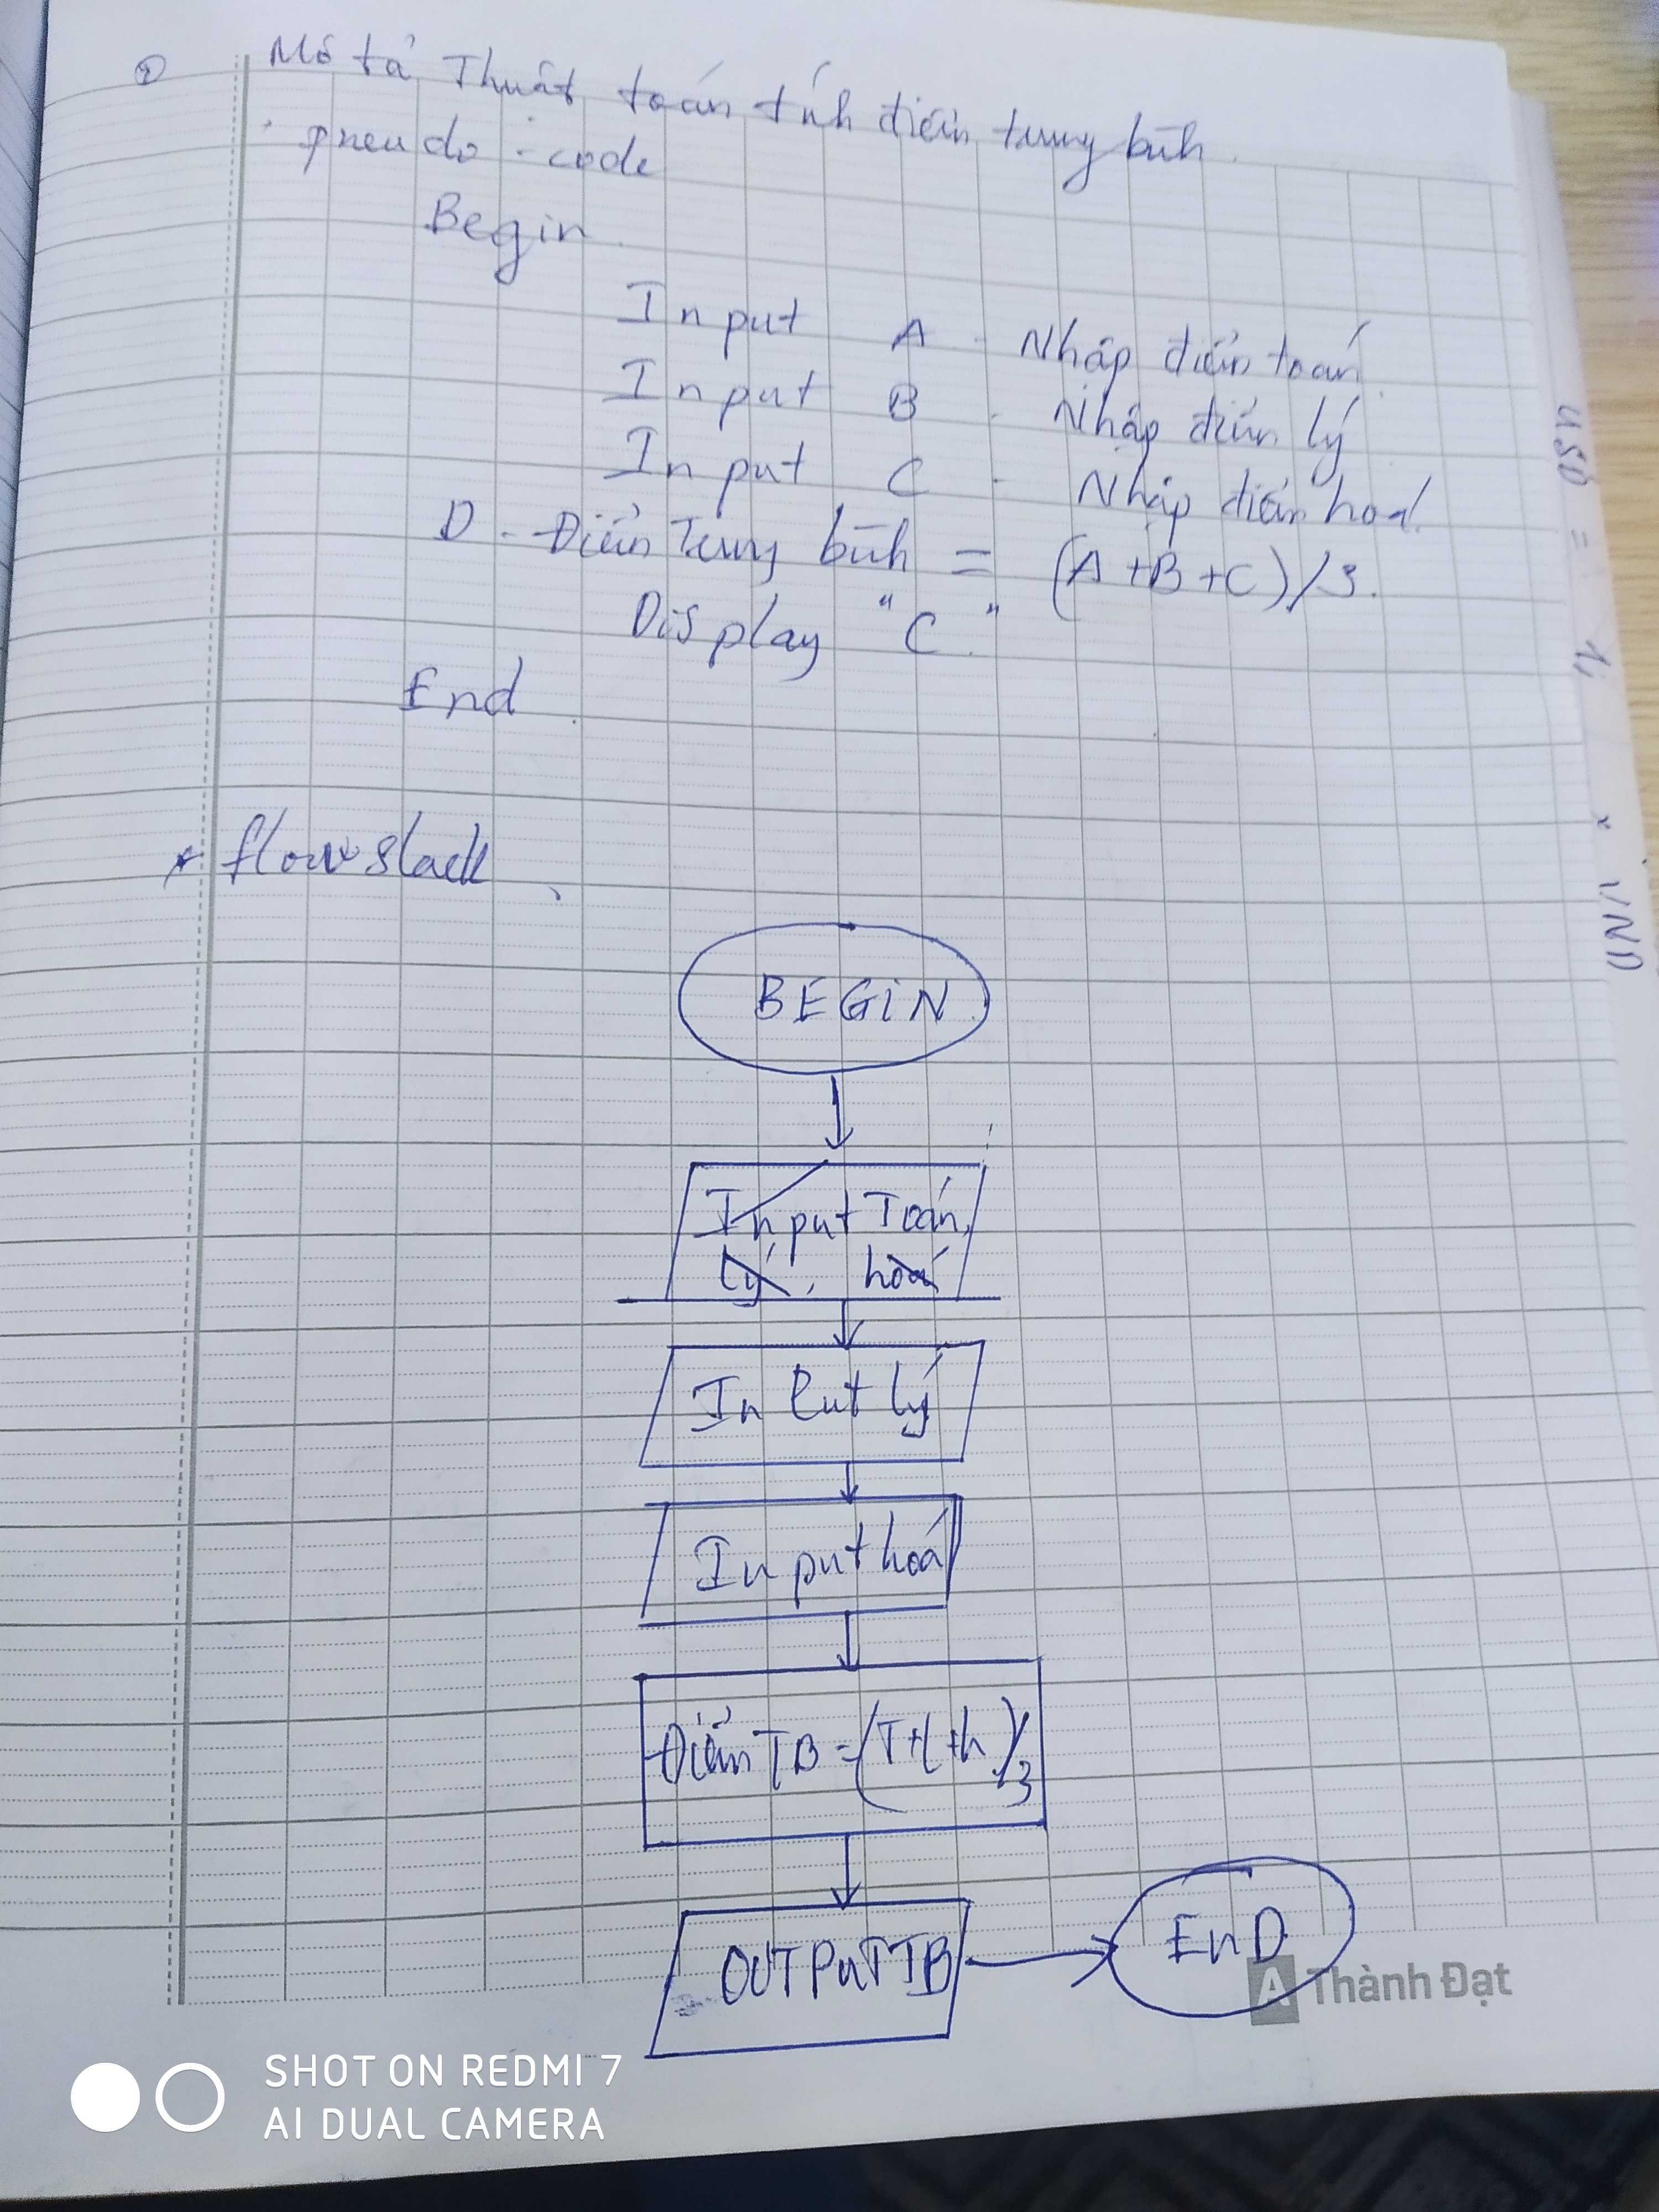 ②
Mô tả Thuật toán tính điểm trung bình.
pneudo-code
Begin
Input A - Nhập điểm toán
Input B - Nhập điểm lý
Input C - Nhập điểm hoá
D - Điểm Trung bình = (A+B+C)/3.
Display "C"
End
* flow slack
BEGIN
Input Toán,
lý, hoá
Input lý
Input hoá
Điểm TB = (T+l+h)/3
OUTPUT TB
END
A Thành Đạt
SHOT ON REDMI 7
AI DUAL CAMERA
USD =
VND